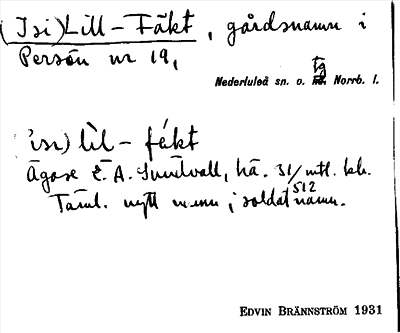 (Isi) Lill-Fäkt, gårdsnamn i
Persön nr 19,
Nederluleå sn. o. tg Norrb. l.
'isi) lìl-fékt
Ägare E. A. Sundvall, hä. 31/512 mtl. kr.
Taml. nytt menn i soldatnamn.
EDVIN BRÄNNSTRÖM 1931